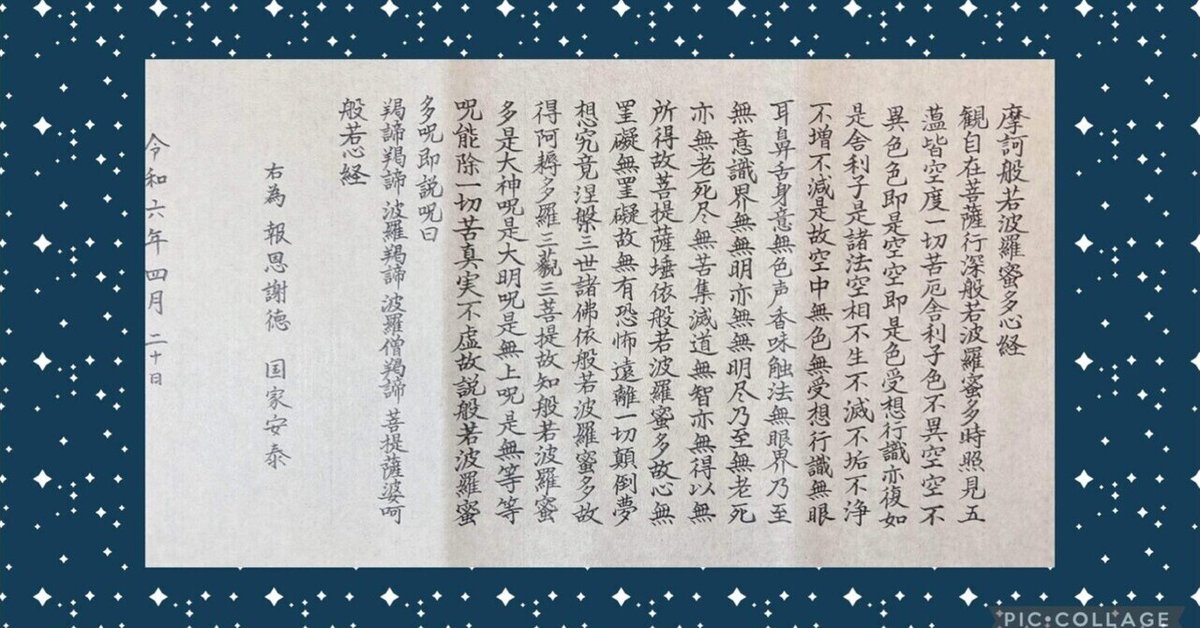 摩訶般若波羅蜜多心経
観自在菩薩行深般若波羅蜜多時照見五
薀皆空度一切苦厄舎利子色不異空空不
異色色即是空空即是色受想行識亦復如
是舎利子是諸法空相不生不滅不垢不浄
不増不減是故空中無色無受想行識無眼
耳鼻舌身意無色声香味触法無眼界乃至
無意識界無無明亦無無明尽乃至無老死
亦無老死尽無苦集滅道無智亦無得以無
所得故菩提薩埵依般若波羅蜜多故心無
罣礙無罣礙故無有恐怖遠離一切顛倒夢
想究竟涅槃三世諸佛依般若波羅蜜多故
得阿耨多羅三藐三菩提故知般若波羅蜜
多是大神呪是大明呪是無上呪是無等等
呪能除一切苦真実不虚故説般若波羅蜜
多呪即説呪曰
羯諦羯諦 波羅羯諦 波羅僧羯諦 菩提薩婆呵
般若心経
右為 報恩謝徳 国家安泰
令和六年四月二十日
PIC•COLLAGE